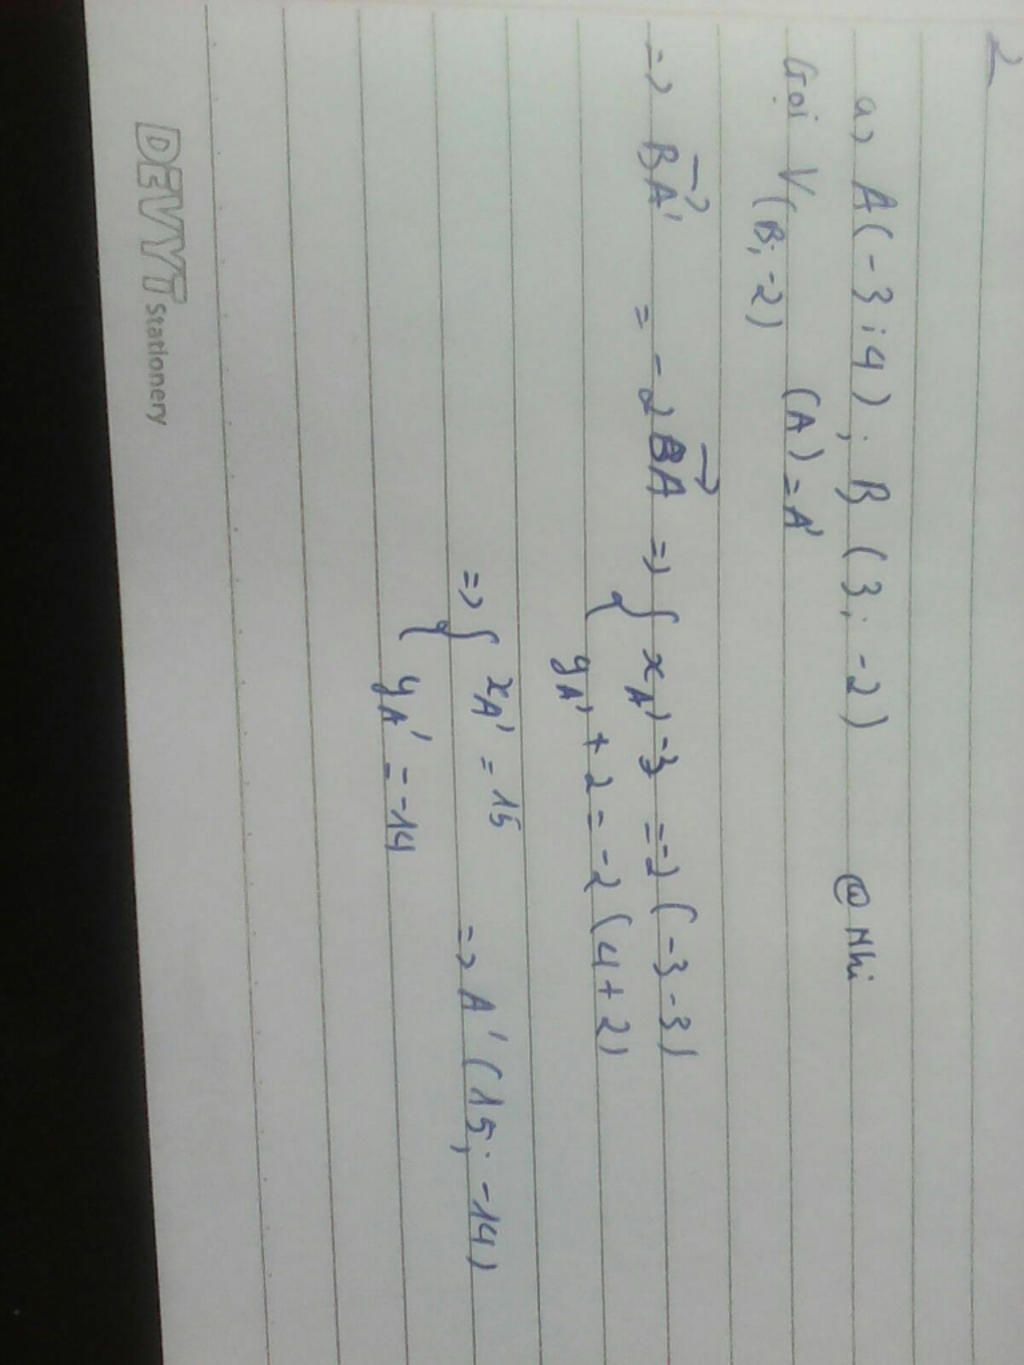 2
a, A(-3;4); B (3;-2) @Nhi
Gọi V(B;-2) (A) = A'
=> BA'→ = -2BA→ => { xA' -3 = -2(-3-3)
yA' + 2 = -2(4+2)
=> { xA' = 15 => A'(15;-14)
yA' = -14
DEVYT Stationery